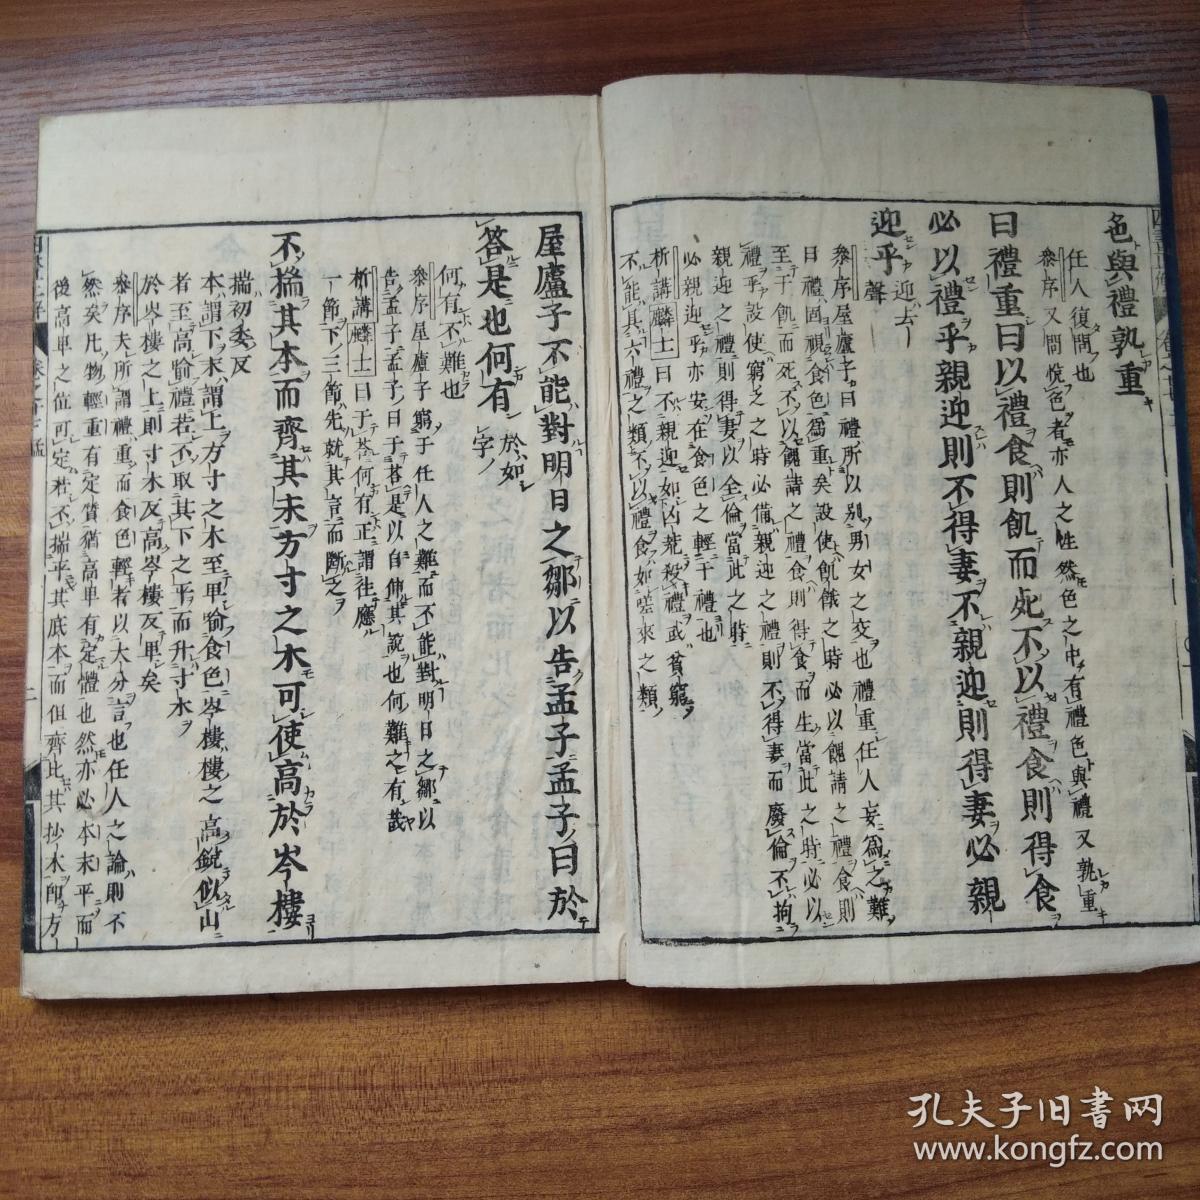 色與禮孰重
任人復問也
參序又問悅色者亦人之性然色之中有禮色與禮又孰重
曰禮重曰以禮食則飢而死不以禮食則得食
必以禮乎親迎則不得妻不親迎則得妻必親
迎乎
迎去聲
參序屋廬子曰禮所以别男女之交也禮重任人妄爲之難
曰禮固視食色爲重矣設使飢餓之時必以餽請之禮食則
至于飢而死不以餽請之禮食則得食而生當此之時必以
禮乎設使窮乏之時必備親迎之禮則不得妻而廢倫不拘
親迎之禮則得妻以全倫當此之時
必親迎乎亦安在食色之輕于禮也
析講麟士曰不親迎如凶荒殺禮或貧窮
不能具六禮之類不以禮食如嗟來之類
屋廬子不能對明日之鄒以告孟子孟子曰於
答是也何有
於如字
何有不難也
參序屋廬子窮于任人之難而不能對明日之鄒以
告孟子孟子曰于答是以自伸其說也何難之有哉
析講麟士曰于荅何有正謂往應
一節下三節先就其言而斷之
不揣其本而齊其末方寸之木可使高於岑樓
揣初委反
本謂下末謂上方寸之木至卑喻食色岑樓樓之高銳似山
者至高喻禮若不取其下之平而升寸木
於岑樓之上則寸木反高岑樓反卑矣
參序夫所謂禮重而食色輕者以大分言也任人之論則不
然矣凡物輕重有定質猶高卑有定體也然亦必本末平而
後高卑之位可定若不揣乎其底本而但齊比其抄末卽方
孔夫子旧书网
www.kongfz.com